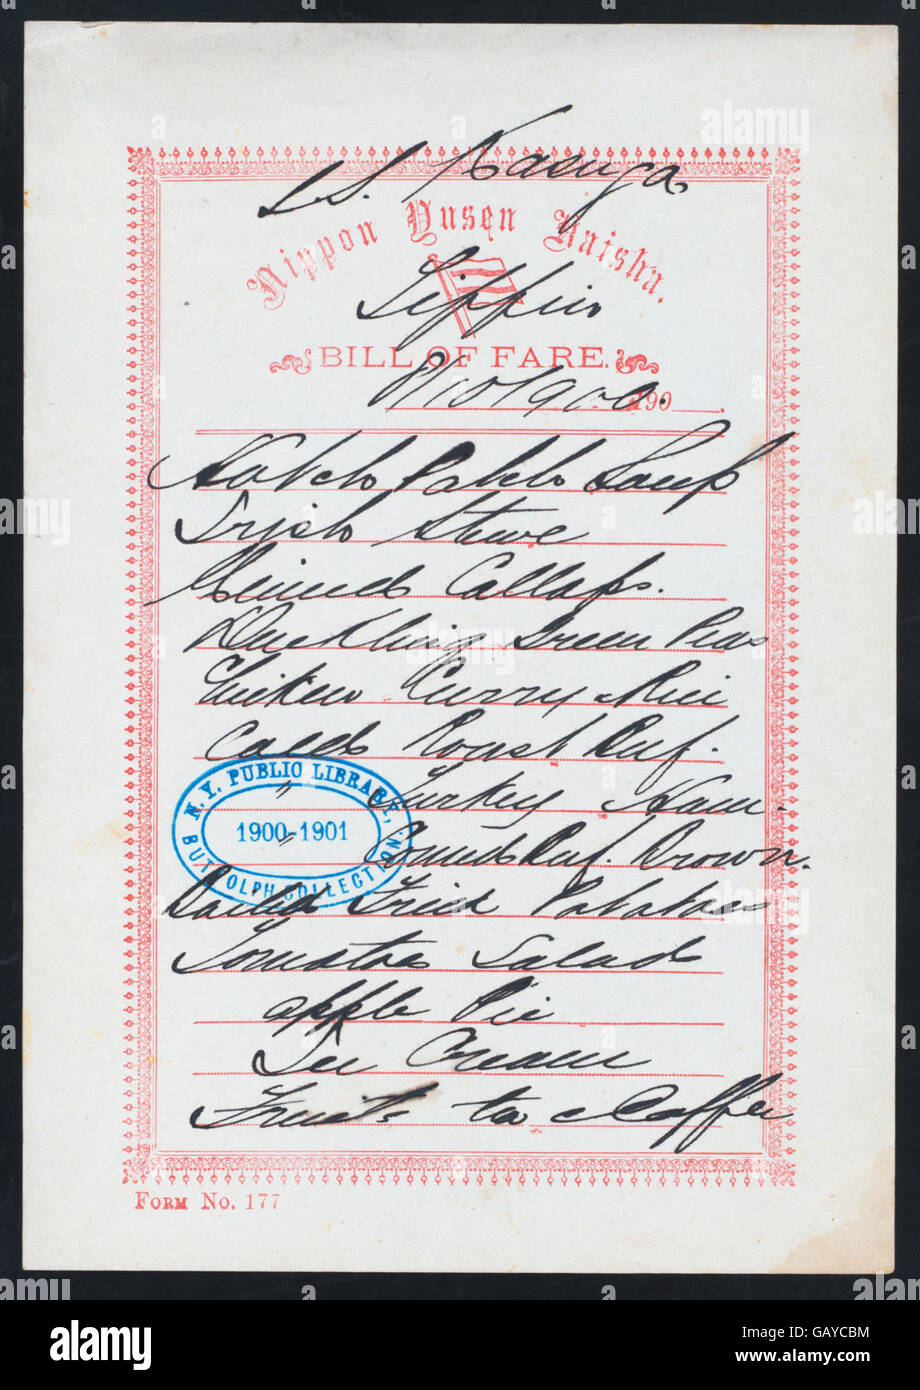 SS. Kasuga
Nippon Yusen Kaisha.
Tiffin
BILL OF FARE.
1900. 190
Potch Soup
Irish Stewe
Minced Callaps.
Duckling Green Peas
Chicken Curry Rice
Cold Roast Beef.
" Turkey Ham.
" Beef. Brown.
Boiled Fried Potatoes
Tomatoes Salad
apple Pie
Ice Cream
Fruits Tea Coffee
N. Y. PUBLIC LIBRARY,
1900-1901
BUTTOLPH COLLECTION.
FORM No. 177
alamy
Image ID: GAYCBM
www.alamy.com